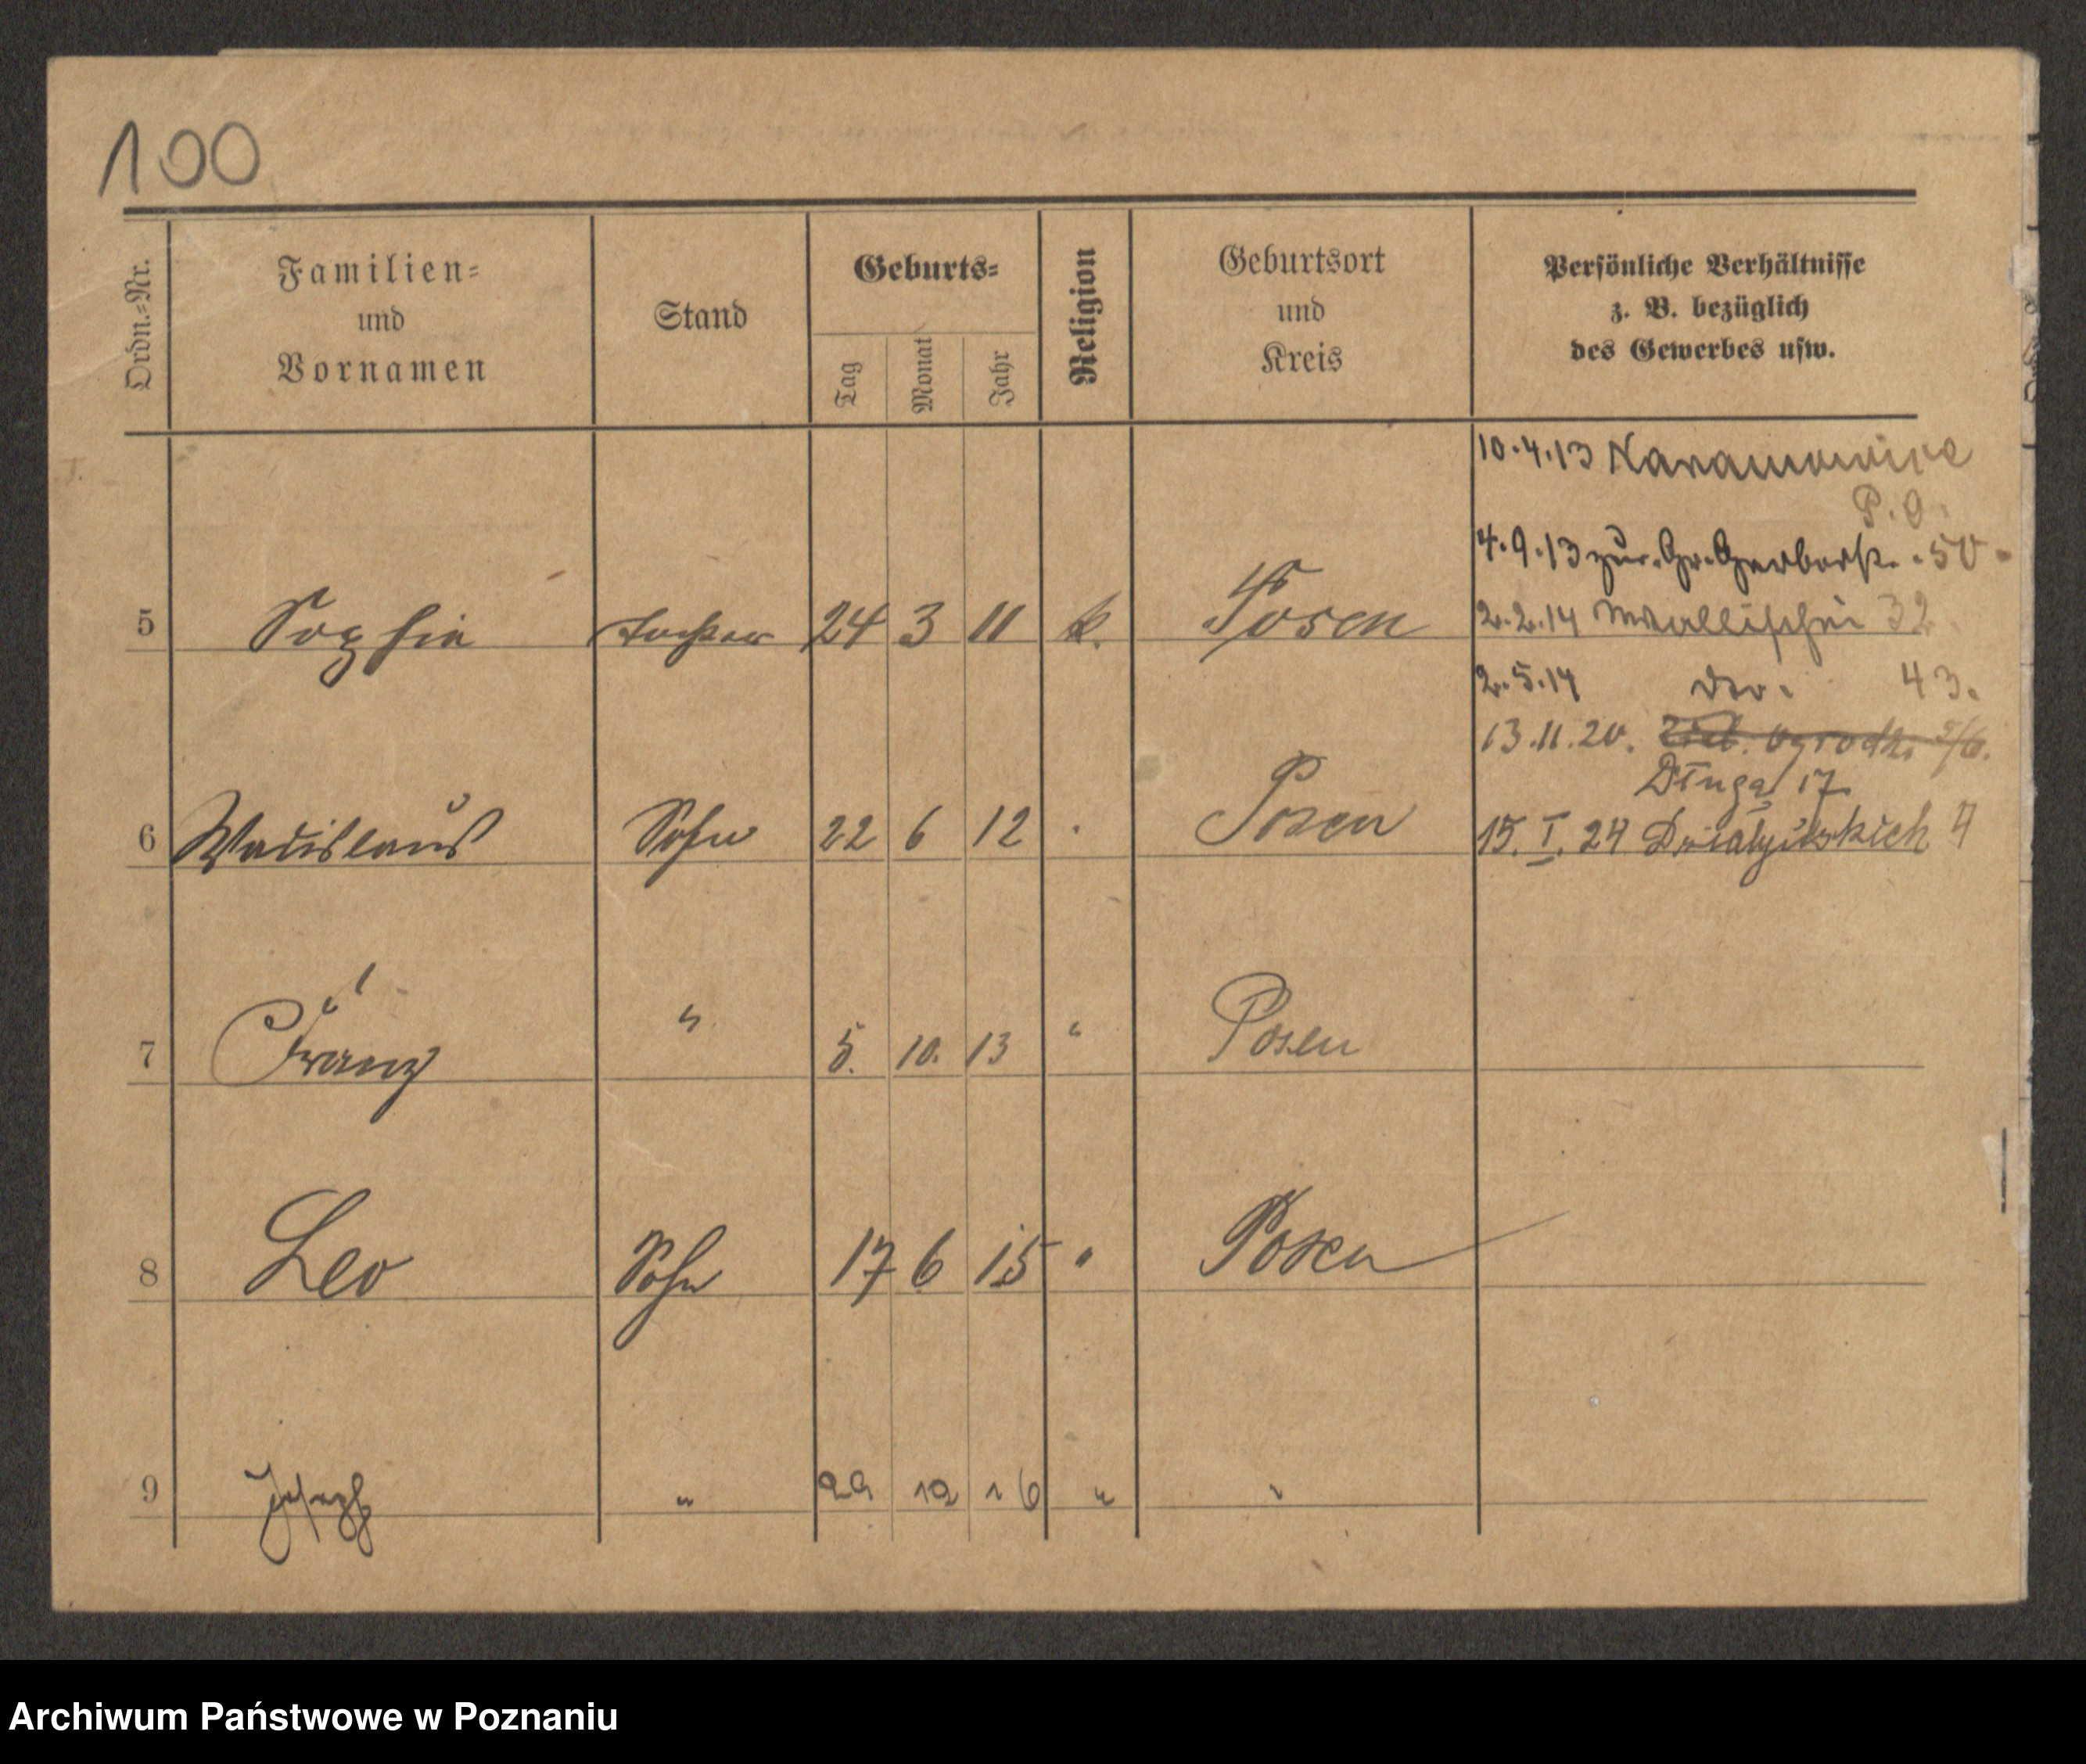 100
Ordn.-Nr.
Familien-
und
Vornamen
Stand
Geburts-
Tag
Monat
Jahr
Religion
Geburtsort
und
Kreis
Persönliche Verhältnisse
z. B. bezüglich
des Gewerbes usw.
10.4.13 Naramowice
P. O.
4.9.13 zur. Gr. Gerberstr. 50.
5 Sophie Tochter 24 3 11 k. Posen 2.2.14 Wallischei 32.
2.5.14 do. 43.
13.11.20. ogrodk. 5/6.
Długa 17.
6 Wladislaus Sohn 22 6 12 Posen 15. I. 24 Działyńskich 4
7 Franz " 5. 10. 13 " Posen
8 Leo Sohn 17 6 15 " Posen
9 Joseph " 29 12 16 " "
Archiwum Państwowe w Poznaniu